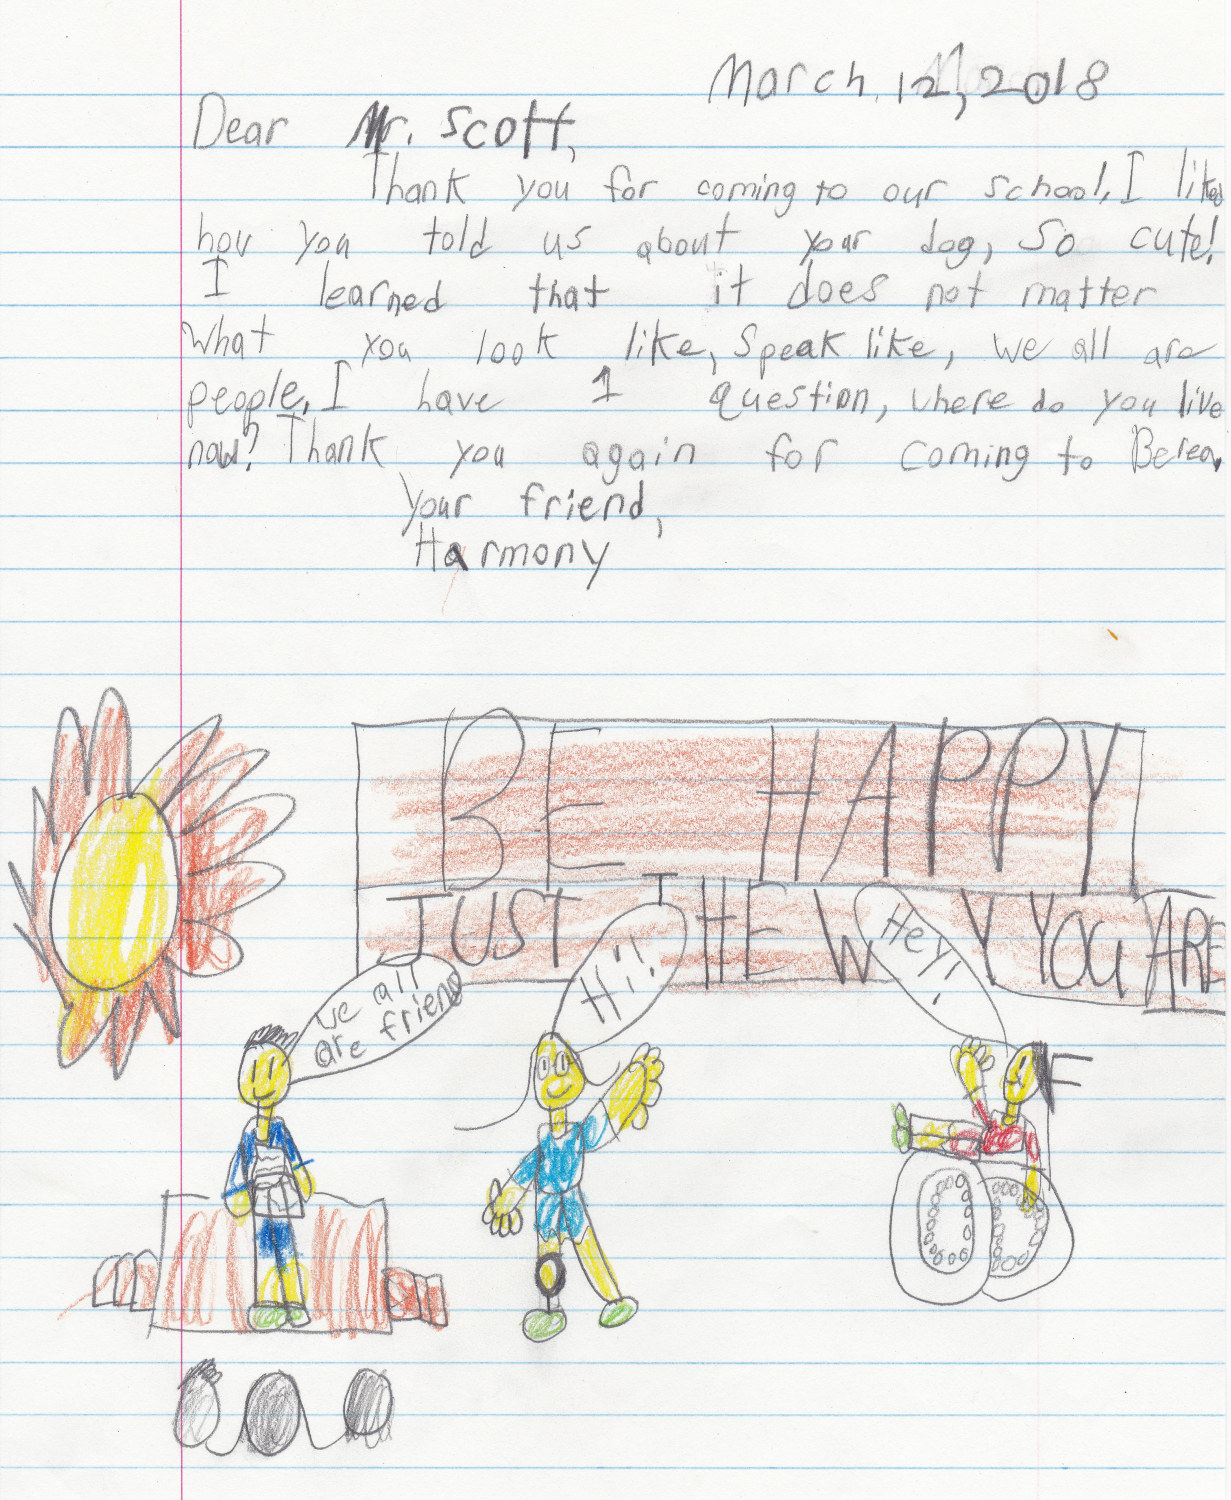 March 12, 2018
Dear Mr. Scott,
Thank you for coming to our school, I liked
how you told us about your dog, So cute!
I learned that it does not matter
what you look like, speak like, we all are
people, I have 1 question, where do you live
now? Thank you again for coming to Berea.
Your friend,
Harmony
BE HAPPY
JUST THE W Y YOU ARE
we all
are friend
Hi!!
Hey!